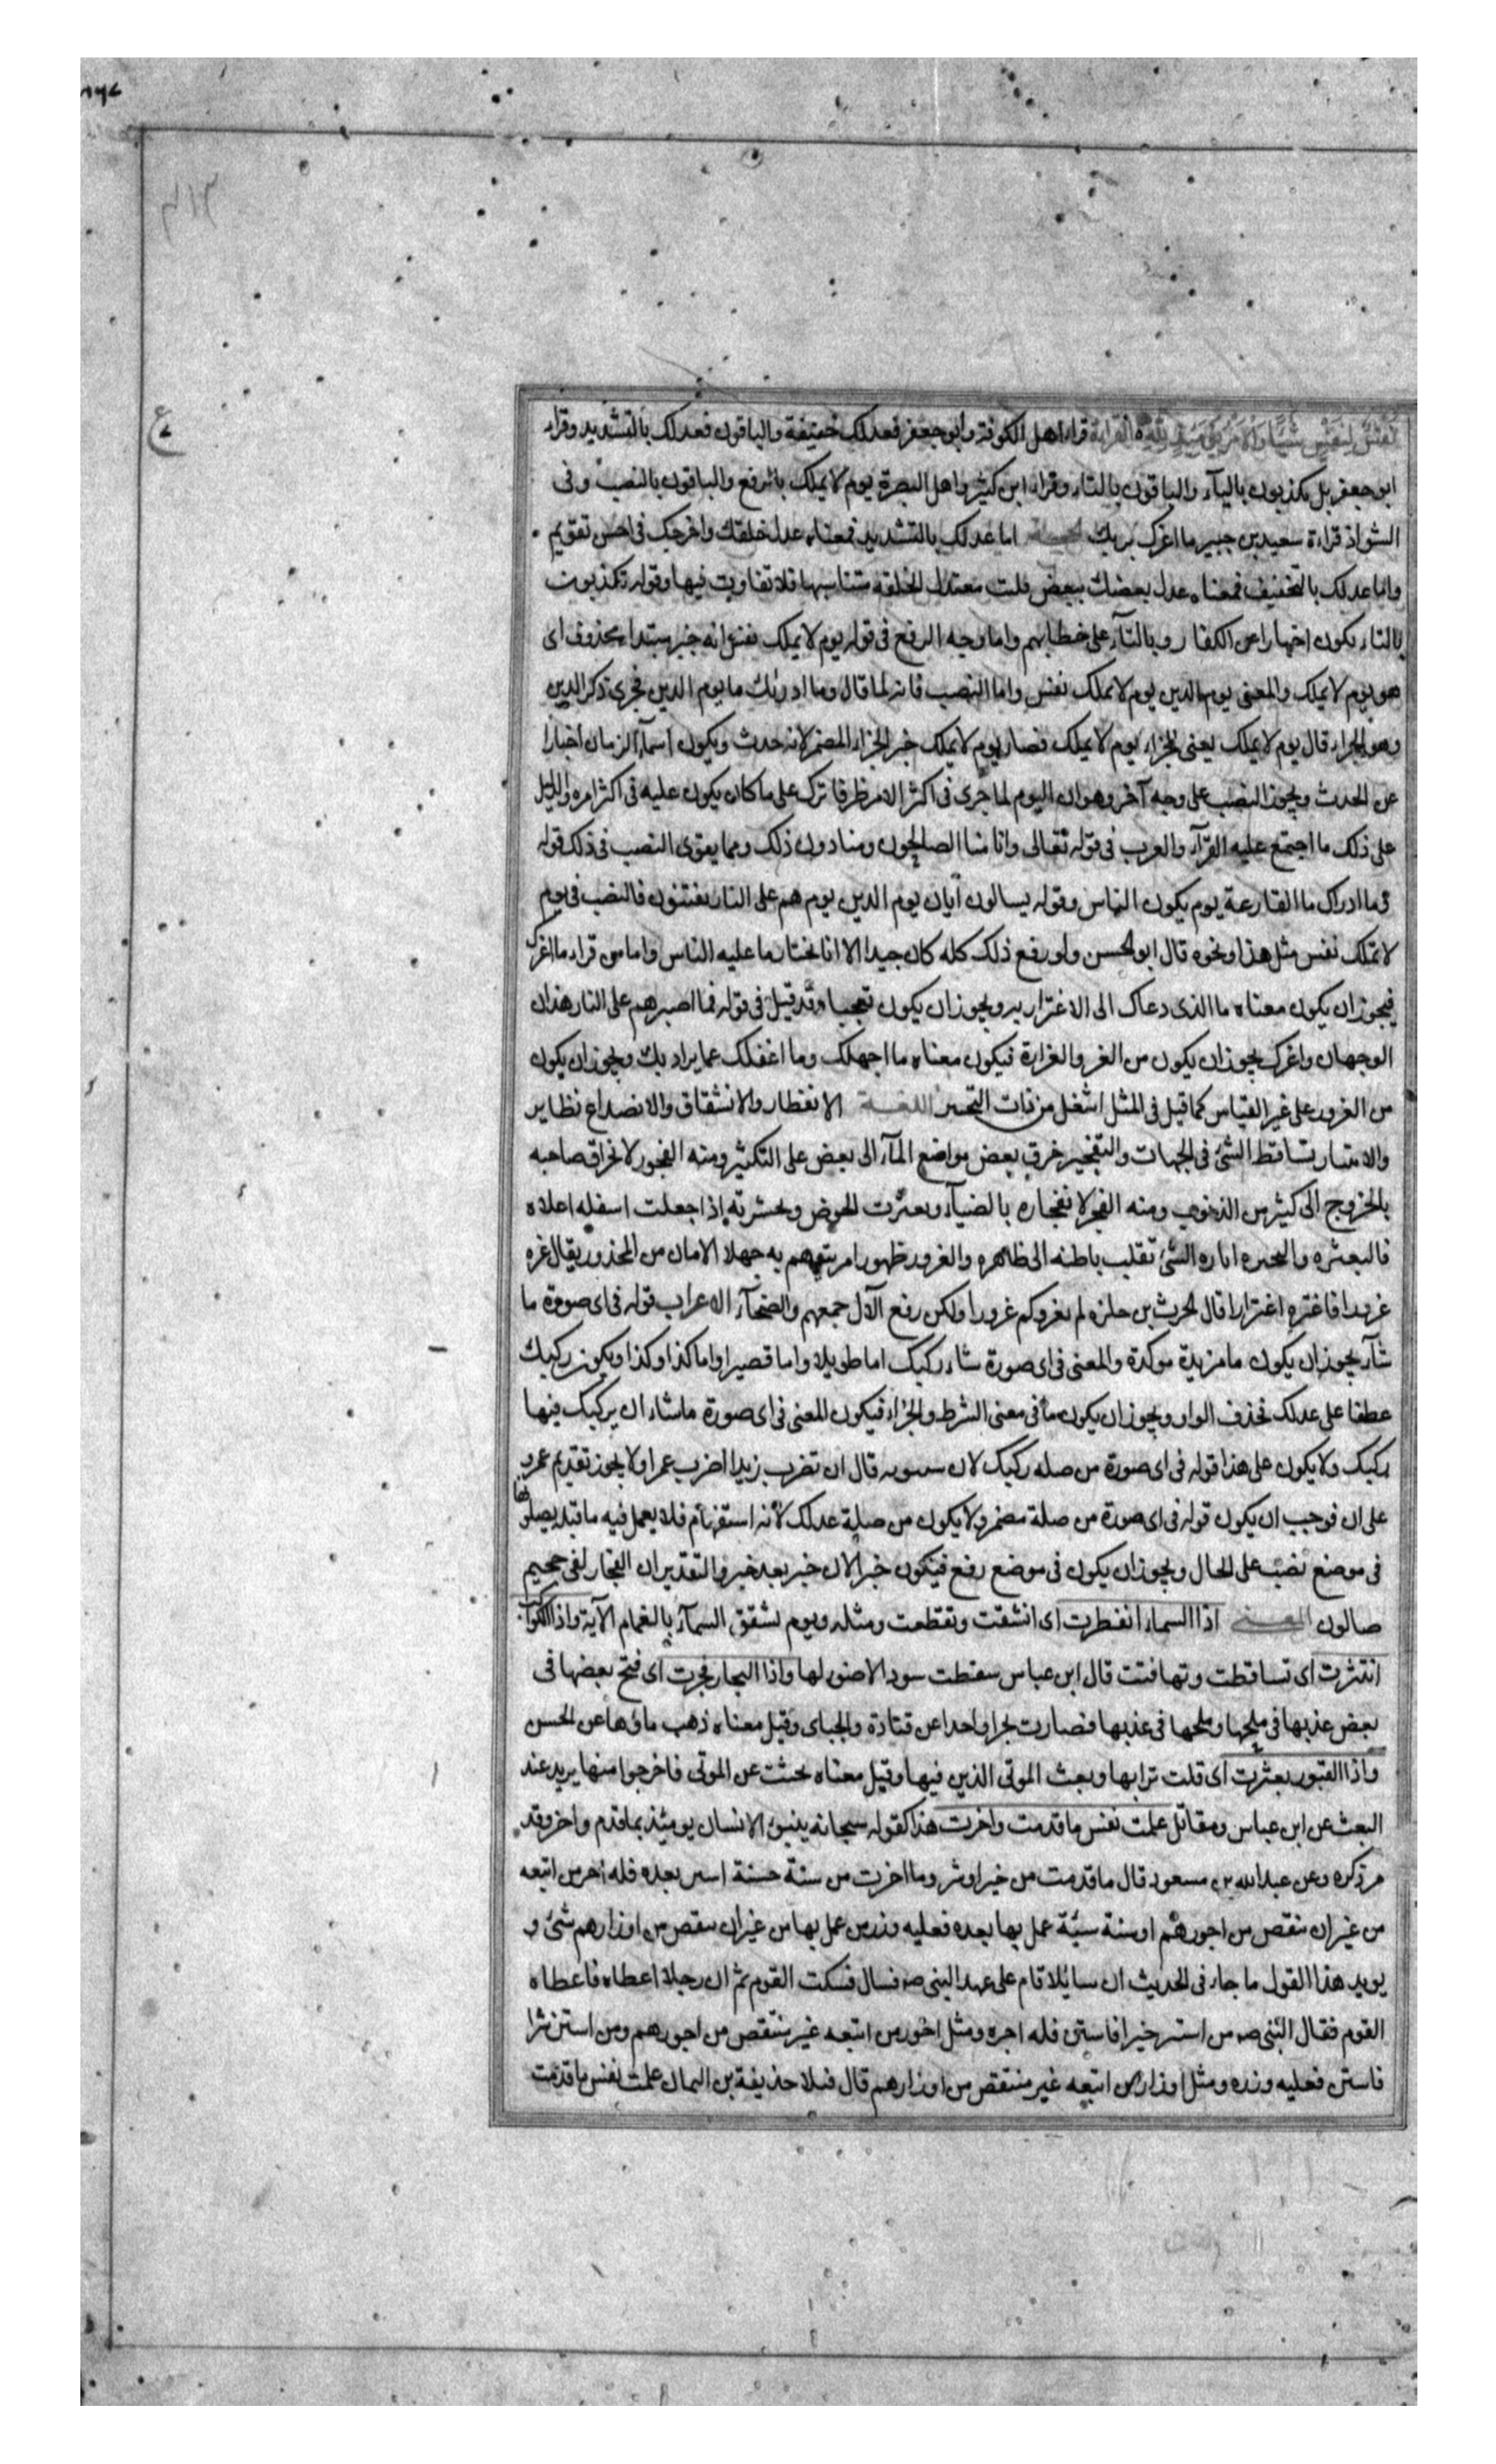 نَفْسٌ لِنَفْسٍ شَيْئًا وَالْأَمْرُ يَوْمَئِذٍ لِلَّهِ القراءة قراء اهل الكوفة وابو جعفر فعدلك خفيفة والباقون فعدلك بالتشديد وقراء
ابو جعفر بل يكذبون بالياء والباقون بالتاء وقراء ابن كثير واهل البصرة يوم لا يملك بالرفع والباقون بالنصب وفى
الشواذ قراءة سعيد بن جبير ما اغرك بربك الحجة اما عدلك بالتشديد فمعناه عدل خلقك واخرجك فى احسن تقويم
واما عدلك بالتخفيف فمعناه عدل بعضك ببعض فلت معتدل الخلقه متناسبها فلا تفاوت فيها وقوله تكذبون
بالتاء يكون اخبارا عن الكفار وبالتاء على خطابهم واما وجه الرفع فى قوله يوم لا يملك نفس انه خبر مبتداء محذوف اى
هو يوم لا يملك والمعنى يوم الدين يوم لا يملك نفس واما النصب فانه لما قال وما ادرئك ما يوم الدين فجرى ذكر الدين
وهو الجزاء قال يوم لا يملك يعنى الجزاء يوم لا يملك فصار يوم لا يملك خبر الجزاء المضمر لانه حدث ويكون اسماء الزمان اخبارا
عن الحدث ويجوز النصب على وجه آخر وهو ان اليوم لما جرى فى اكثر الامر ظرفا ترك على ما كان يكون عليه فى اكثر امره والدليل
على ذلك ما اجتمع عليه القراء والعرب فى قوله تعالى وانا منا الصالحون ومنا دون ذلك ومما يقوى النصب فى ذلك قوله
وما ادراك ما القارعة يوم يكون الناس وقوله يسالون ايان يوم الدين يوم هم على النار يفتنون فالنصب فى يوم
لا تملك نفس مثل هذا ونحوه قال ابو الحسن ولو رفع ذلك كله كان جيدا الا انا نختار ما عليه الناس واما من قراء ما اغرك
فيجوز ان يكون معناه ما الذى دعاك الى الاغترار به ويجوز ان يكون تعجبا وقد قيل فى قوله فما اصبرهم على النار هذان
الوجهان واغرك يجوز ان يكون من الغر والغرارة فيكون معناه ما اجهلك وما اغفلك عما يراد بك ويجوز ان يكون
من الغرور على غير القياس كما قيل فى المثل اشغل من ذات النحيين اللغة الانفطار والانشقاق والانصداع نظاير
والانتثار تساقط الشئ فى الجهات والتفجير خرق بعض مواضع الماء الى بعض على التكثير ومنه الفجور لانخراق صاحبه
بالخروج الى كثير من الذنوب ومنه الفجر لانفجاره بالضياء وبعثرت الحوض وبحثرته اذا جعلت اسفله اعلاه
فالبعثره والبحثره اثاره الشئ تقليب باطنه الى ظاهره والغرور ظهور امر يتوهم به جهلا الامان من المحذور يقال غره
غرورا فاغتره اغترارا قال الحرث بن حلزه لم يغروكم غرورا ولكن رفع الآل جمعهم والضحاء الاعراب قوله فى اى صورة ما
شاء يجوز ان يكون ما مزيدة موكدة والمعنى فى اى صورة شاء ركبك اما طويلا واما قصيرا واما كذا وكذا ويكون ركبك
عطفا على عدلك فحذف الواو ويجوز ان يكون ما فى معنى الشرط والجزاء فيكون المعنى فى اى صورة ما شاء ان يركبك فيها
ركبك ولا يكون على هذا قوله فى اى صورة من صله ركبك لان سيبويه قال ان تضرب زيدا اضرب عمرا ولا يجوز تقديم عمرو
على ان فوجب ان يكون قوله فى اى صورة من صلة مضمر ولا يكون من صلة عدلك لانه استفهام فلا يعمل فيه ما قبله يصلونها
فى موضع نصب على الحال ويجوز ان يكون فى موضع رفع فيكون خبرا لان خبر بعد خبر والتقدير ان الفجار لفى جحيم
صالون المعنى اذا السماء انفطرت اى انشقت وتقطعت ومثله ويوم تشقق السماء بالغمام الآية واذا الكواكب
انتثرت اى تساقطت وتهافتت قال ابن عباس سقطت سود الا ضور لها واذا البحار فجرت اى فتح بعضها فى
بعض عذبها فى ملحها وملحها فى عذبها فصارت بحرا واحدا عن قتادة والجباى وقيل معناه ذهب ماؤها عن الحسن
واذا القبور بعثرت اى قلت ترابها وبعث الموتى الذين فيها وقيل معناه بحثت عن الموتى فاخرجوا منها يريد عند
البعث عن ابن عباس ومقاتل علمت نفس ما قدمت واخرت هذا كقوله سبحانه ينبؤ الانسان يومئذ بما قدم واخر وقد
مر ذكره وعن عبد الله بن مسعود قال ما قدمت من خير او شر وما اخرت من سنة حسنة استن بعده فله اجر من اتبعه
من غير ان ينقص من اجورهم او سنة سيئة عمل بها بعده فعليه وزر من عمل بها من غير ان ينقص من اوزارهم شئ و
يويد هذا القول ما جاء فى الحديث ان سائلا قام على عهد النبى صه فسال فسكت القوم ثم ان رجلا اعطاه فاعطاه
القوم فقال النبى صه من استن خيرا فاستن فله اجره ومثل اجور من اتبعه غير منتقص من اجورهم ومن استن شرا
فاستن فعليه وزره ومثل اوزار من اتبعه غير منتقص من اوزارهم قال فتلا حذيفة بن اليمان علمت نفس ما قدمت